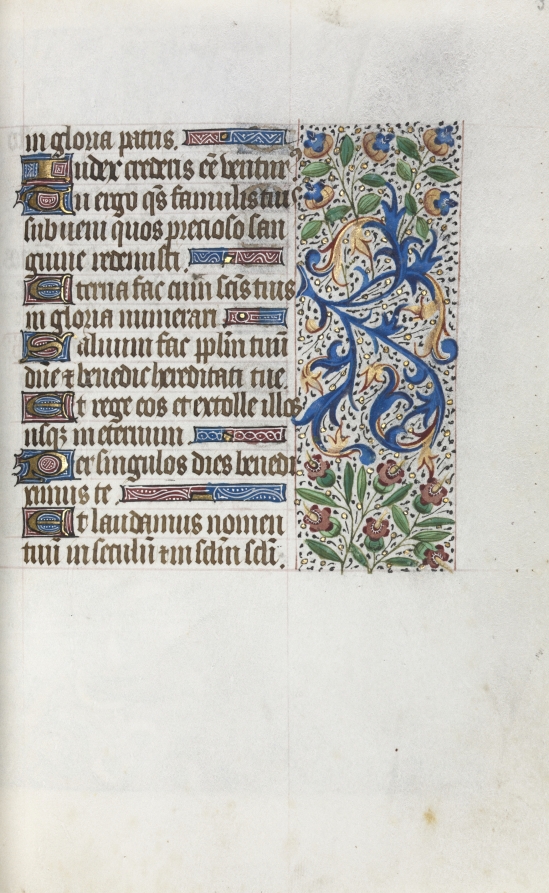 in gloria patris.
Iudex crederis eē ventur⁹
Te ergo q̄s famulis tuis
subueni quos precioso san
guine redemisti.
Eterna fac cum sc̄is tuis
in gloria numerari.
Saluum fac pplm̄ tuū
dn̄e ⁊ benedic hereditati tue.
Et rege eos et extolle illos
usqꝫ in eternum.
Per singulos dies benedi
cimus te.
Et laudamus nomen
tuū in seculū ⁊ in sclm̄ scli.